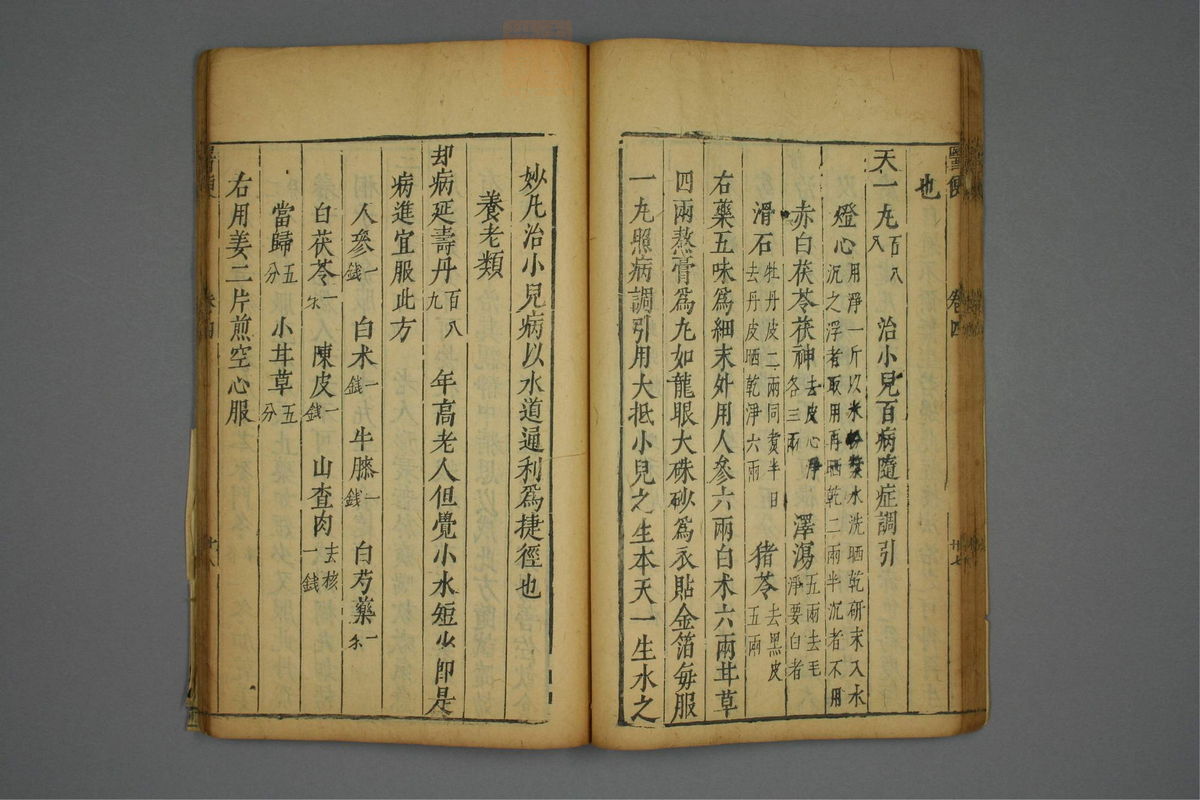 醫便 卷四 廿七
也
天一丸 百八 八 治小兒百病隨症調引
燈心 用淨一斤以米粉漿水洗晒乾研末入水
沉之浮者取用再晒乾二兩半沉者不用
赤白茯苓茯神 去皮心淨各三兩 澤瀉 五兩去毛淨要白者
滑石 牡丹皮二兩同煑半日去丹皮晒乾淨六兩 猪苓 去黑皮五兩
右藥五味爲細末外用人參六兩白术六兩甘草
四兩熬膏爲丸如龍眼大硃砂爲衣貼金箔每服
一丸照病調引用大抵小兒之生本天一生水之
妙凡治小兒病以水道通利爲捷徑也
養老類
却病延壽丹 百八九 年高老人但覺小水短少即是
病進宜服此方
人參 一錢 白术 一錢 牛膝 一錢 白芍藥 一錢
白茯苓 一錢 陳皮 一錢 山查肉 去核一錢
當歸 五分 小甘草 五分
右用姜二片煎空心服